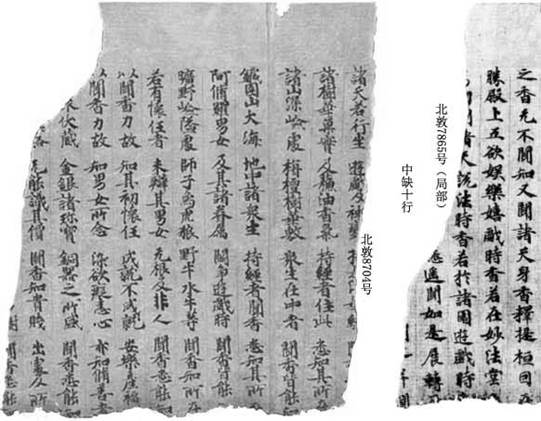 之香无不聞知又聞諸天身香釋提桓因在
勝殿上五欲娛樂嬉戲時香若在妙法堂
諸天說法時香若於諸園遊戲時
悉遙聞如是展轉
北敦7865号（局部）
中缺十行
北敦8704号
諸天若行坐 遊戲及神變
諸樹華菓實 及蘓油香氣 持經者住此 悉知其所在
諸山深嶮處 栴檀樹華敷 衆生在中者 聞香皆能知
鐵圍山大海 地中諸衆生 持經者聞香 悉知其所在
阿脩羅男女 及其諸眷屬 鬪諍遊戲時 聞香皆能知
曠野嶮隘處 師子烏虎狼 野牛水牛等 聞香知所在
若有懷任者 未辯其男女 无根及非人 聞香悉能知
以聞香力故 知其初懷任 成就不成就 安樂產福
以聞香力故 知男女所念 染欲癡恚心 亦知脩善者
伏藏 金銀諸珍寶 銅器之所盛 聞香悉能知
无能識其價 聞香知貴賤 出處及所